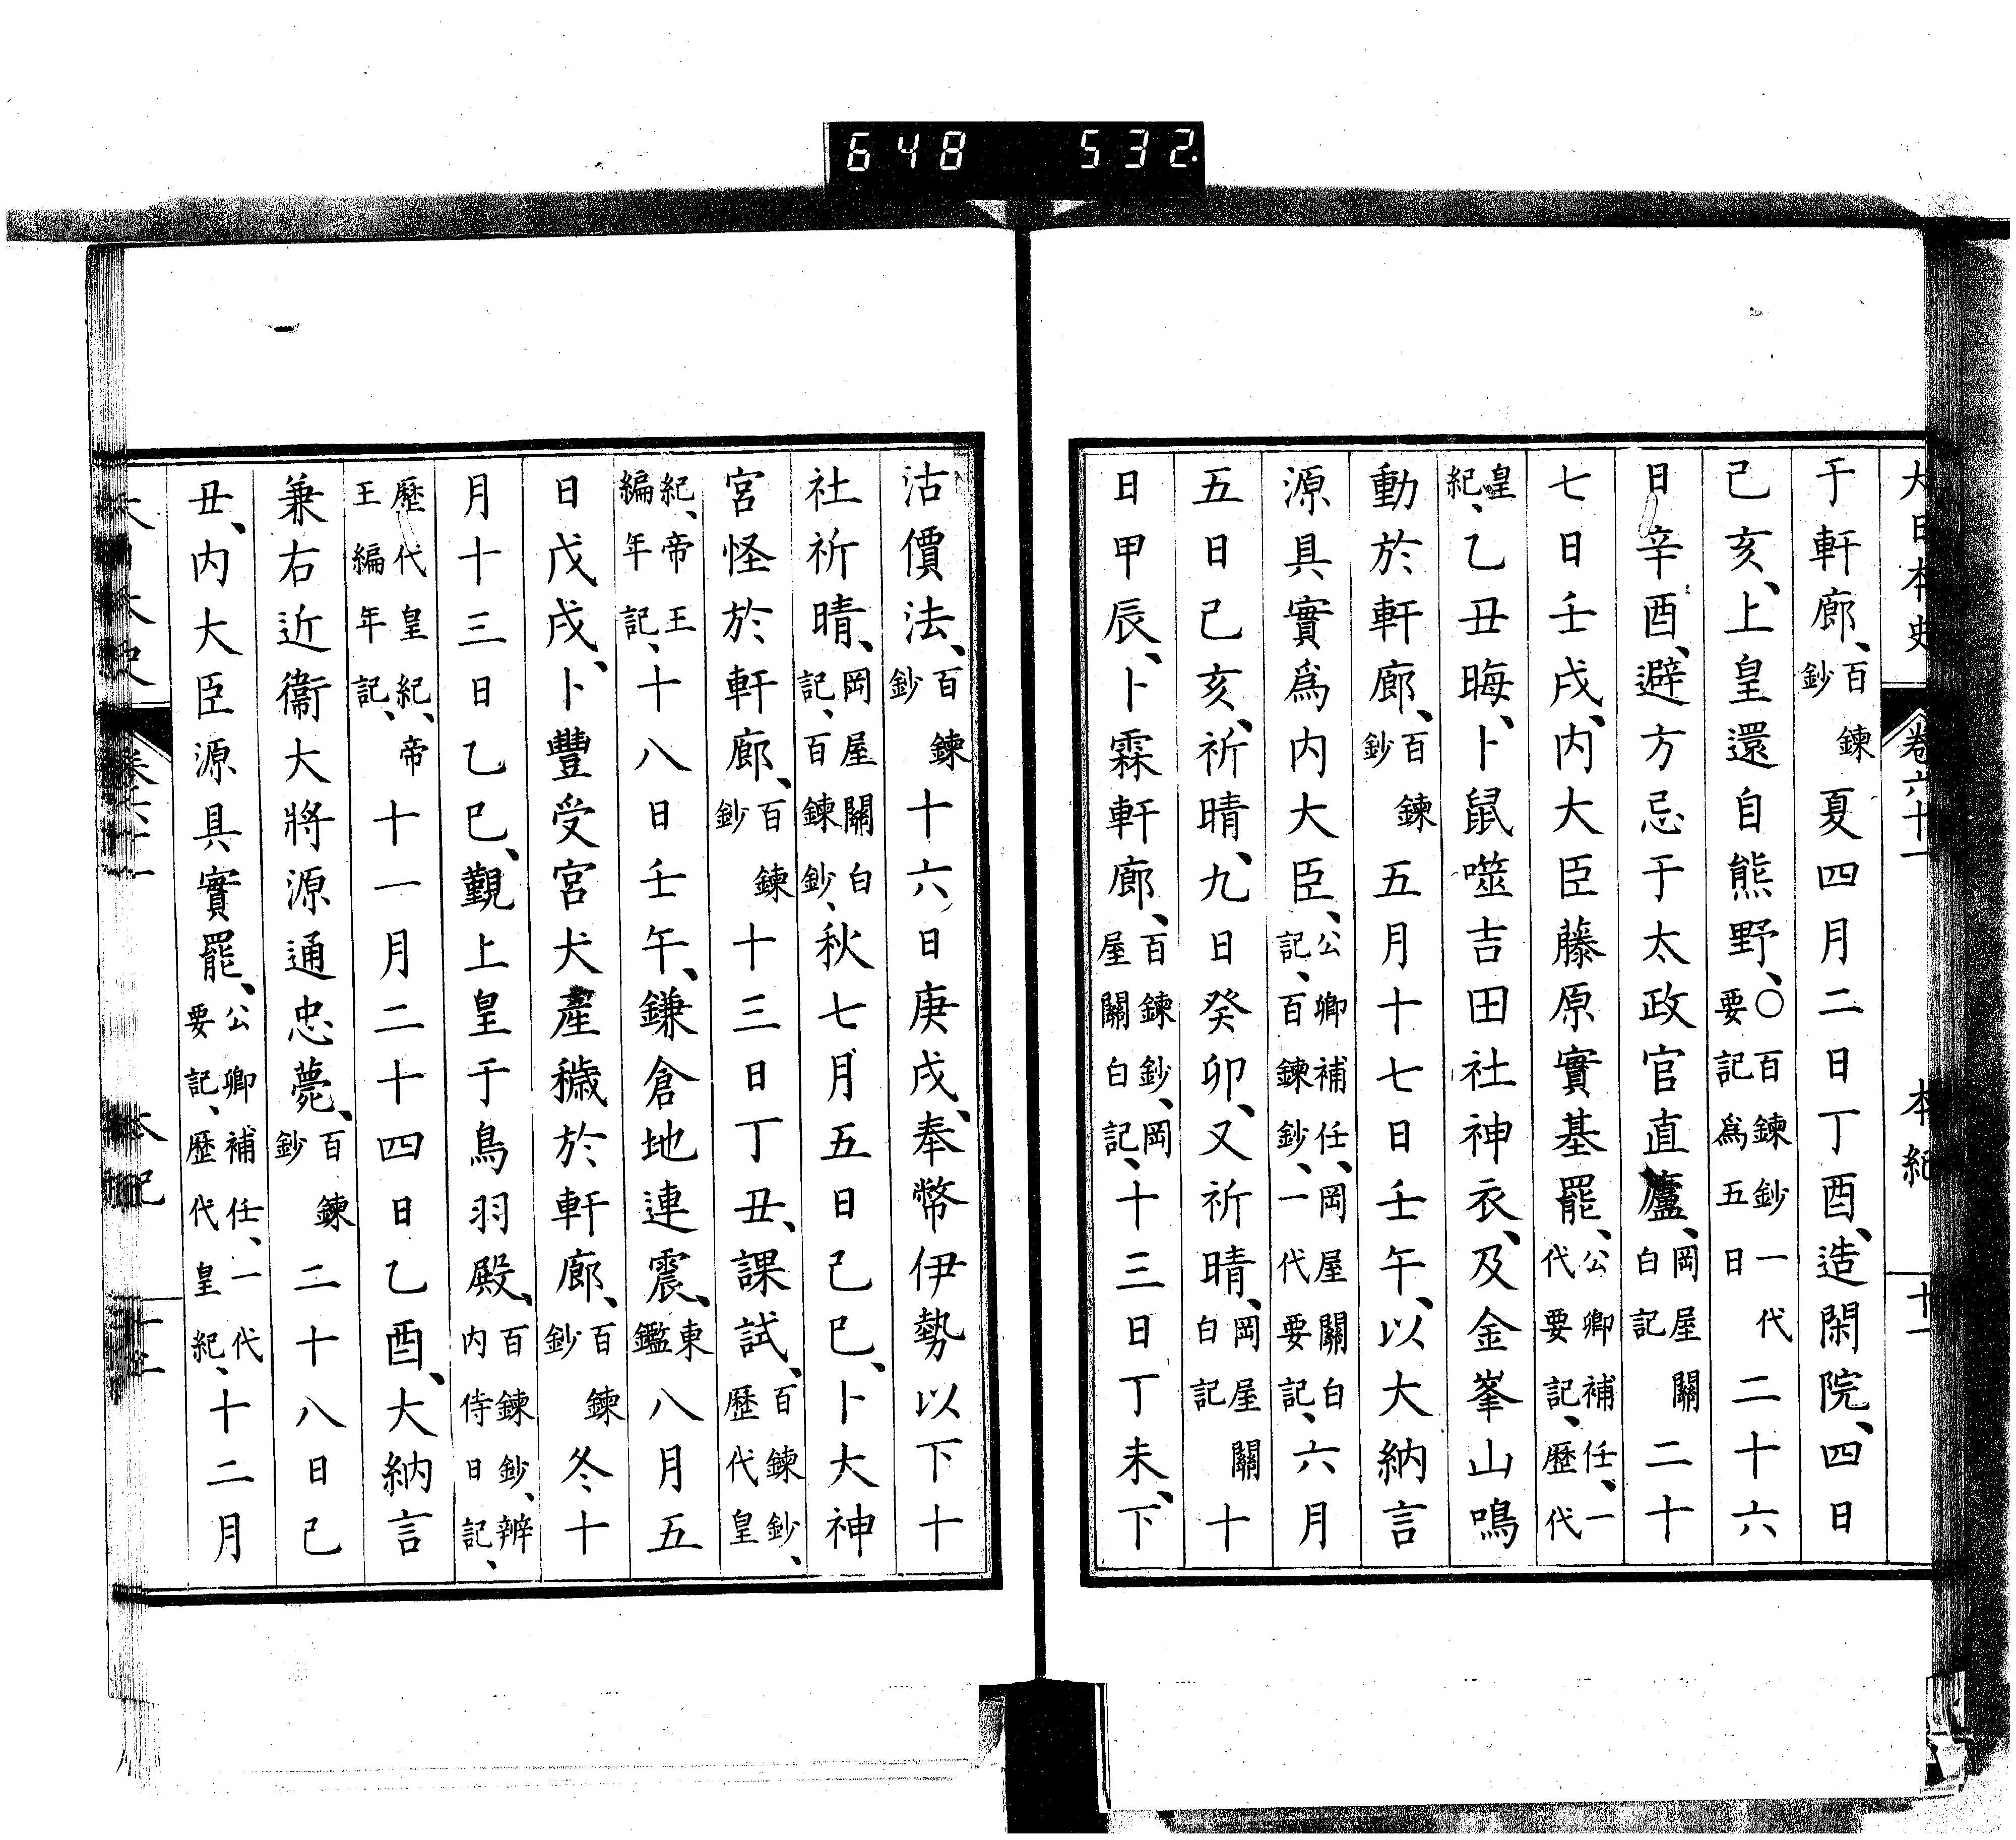 648 532
大日本史 卷六十一 本紀 十一
于軒廊、百鍊鈔夏四月二日丁酉、造閑院、四日
己亥、上皇還自熊野、○百鍊鈔一代要記爲五日二十六
日辛酉、避方忌于太政官直廬、岡屋關白記二十
七日壬戌、内大臣藤原實基罷、公卿補任、一代要記、歷代
皇紀、乙丑晦、卜鼠噬吉田社神衣、及金峯山鳴
動於軒廊、百鍊鈔五月十七日壬午、以大納言
源具實爲内大臣、公卿補任、岡屋關白記、百鍊鈔、一代要記、六月
五日己亥、祈晴、九日癸卯、又祈晴、岡屋關白記十
日甲辰、卜霖軒廊、百鍊鈔、岡屋關白記、十三日丁未、下
沽價法、百鍊鈔十六日庚戌、奉幣伊勢以下十
社祈晴、岡屋關白記、百鍊鈔、秋七月五日己巳、卜大神
宮怪於軒廊、百鍊鈔十三日丁丑、課試、百鍊鈔、歷代皇
紀、帝王編年記、十八日壬午、鎌倉地連震、東鑑八月五
日戊戌、卜豐受宮犬產穢於軒廊、百鍊鈔冬十
月十三日乙巳、覲上皇于鳥羽殿、百鍊鈔、辨内侍日記、
歷代皇紀、帝王編年記、十一月二十四日乙酉、大納言
兼右近衞大將源通忠薨、百鍊鈔二十八日己
丑、内大臣源具實罷、公卿補任、一代要記、歷代皇紀、十二月